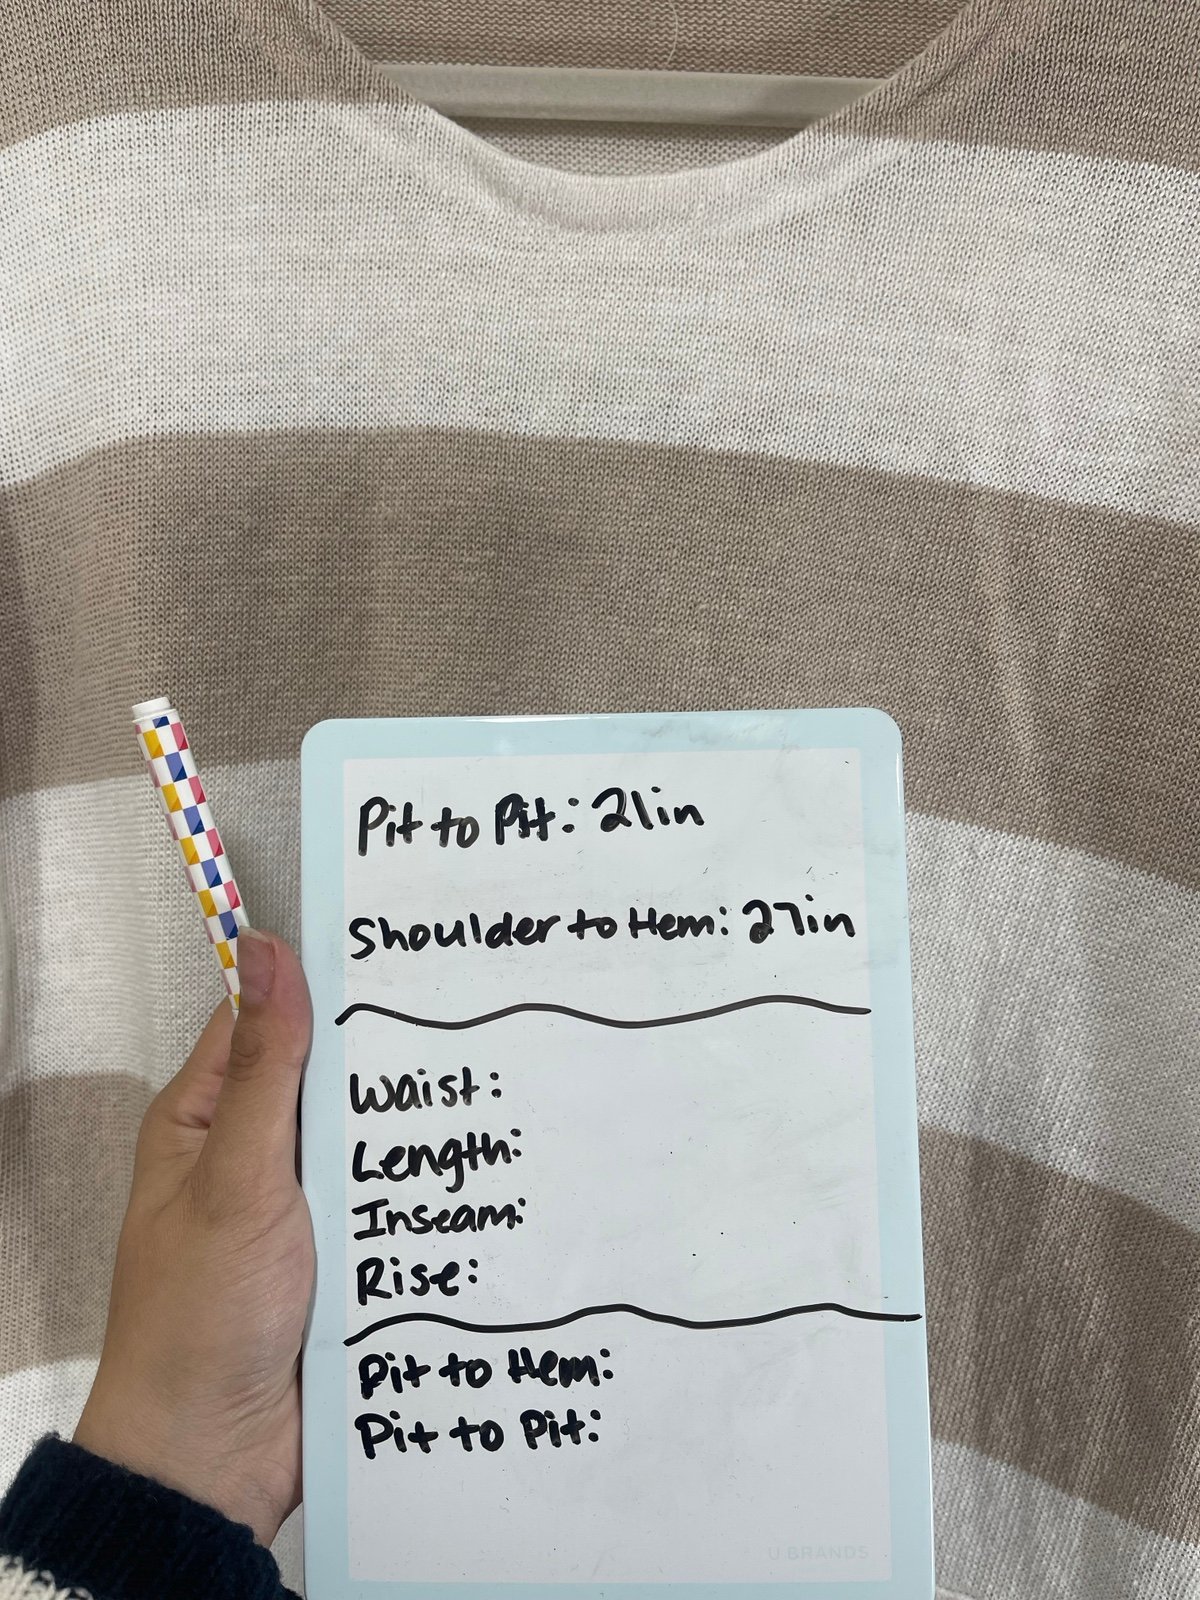 Pit to Pit: 21in
Shoulder to Hem: 27in
Waist:
Length:
Inseam:
Rise:
Pit to Hem:
Pit to Pit:
U BRANDS